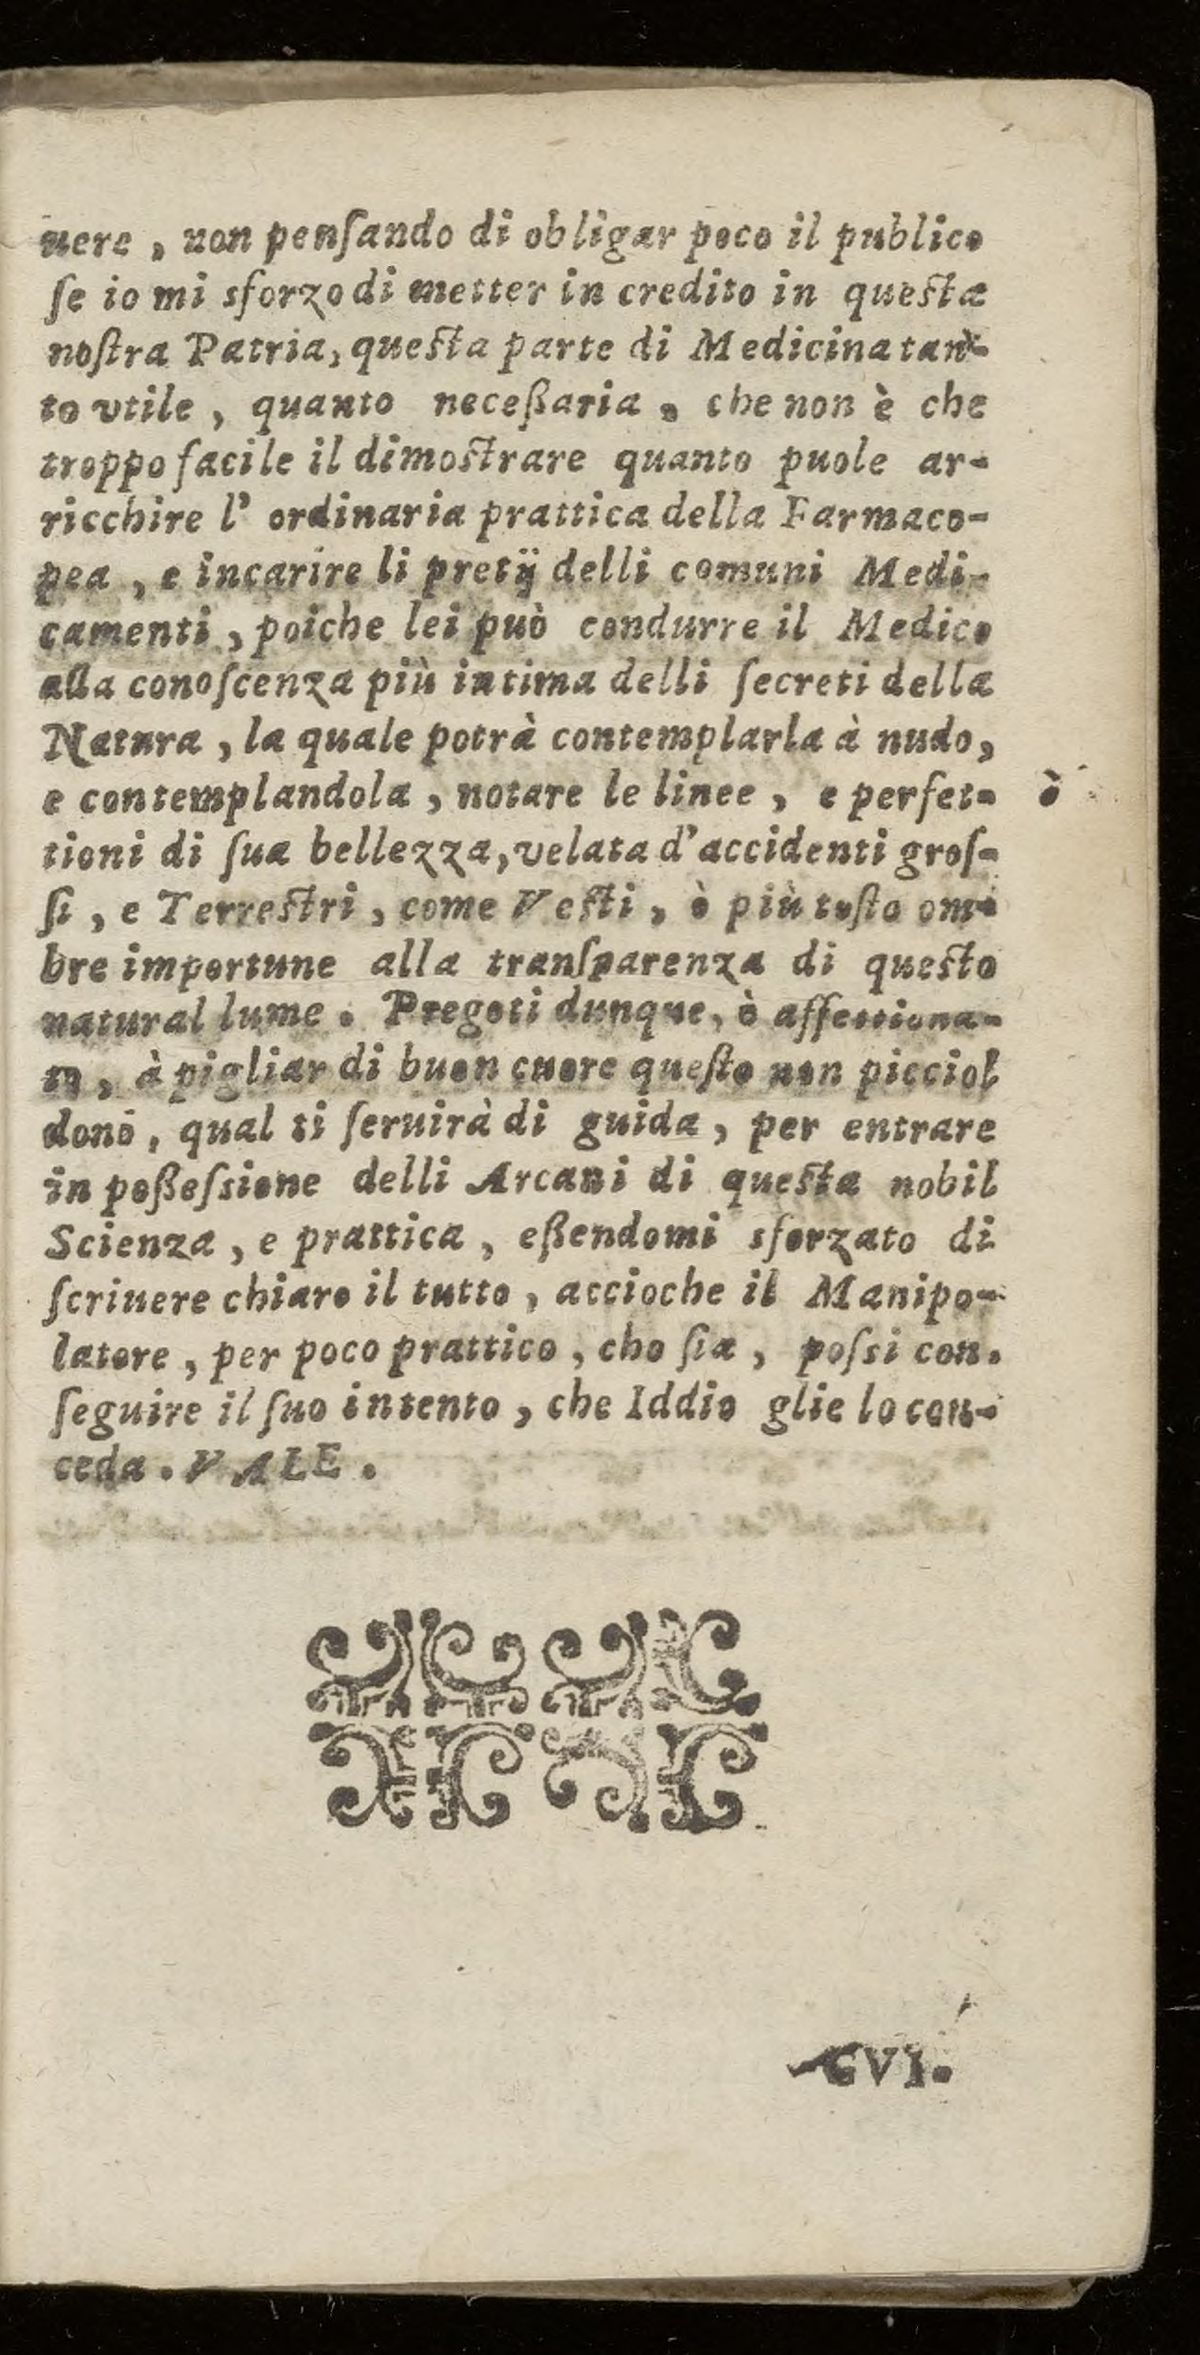 uere, non penſando di obligar poco il publico
ſe io mi sforzo di metter in credito in queſta
noſtra Patria, queſta parte di Medicina tan-
to vtile, quanto neceßaria, che non è che
troppo facile il dimoſtrare quanto puole ar-
ricchire l' ordinaria prattica della Farmaco-
pea, e incarire li pretij delli comuni Medi-
camenti, poiche lei può condurre il Medico
alla conoſcenza più intima delli ſecreti della
Natura, la quale potrà contemplarla à nudo,
e contemplandola, notare le linee, e perfet-
tioni di ſua bellezza, velata d'accidenti groſ-
ſi, e Terreſtri, come Veſti, ò più toſto om-
bre importune alla tranſparenza di queſto
natural lume. Pregoti dunque, ò affettiona-
to, à pigliar di buon cuore queſto non picciol
dono, qual ti ſeruirà di guida, per entrare
in poßeſsione delli Arcani di queſta nobil
Scienza, e prattica, eßendomi sforzato di
ſcriuere chiaro il tutto, accioche il Manipo-
latore, per poco prattico, cho ſia, poſsi con-
ſeguire il ſuo intento, che Iddio glie lo con-
ceda. VALE.
CVI.